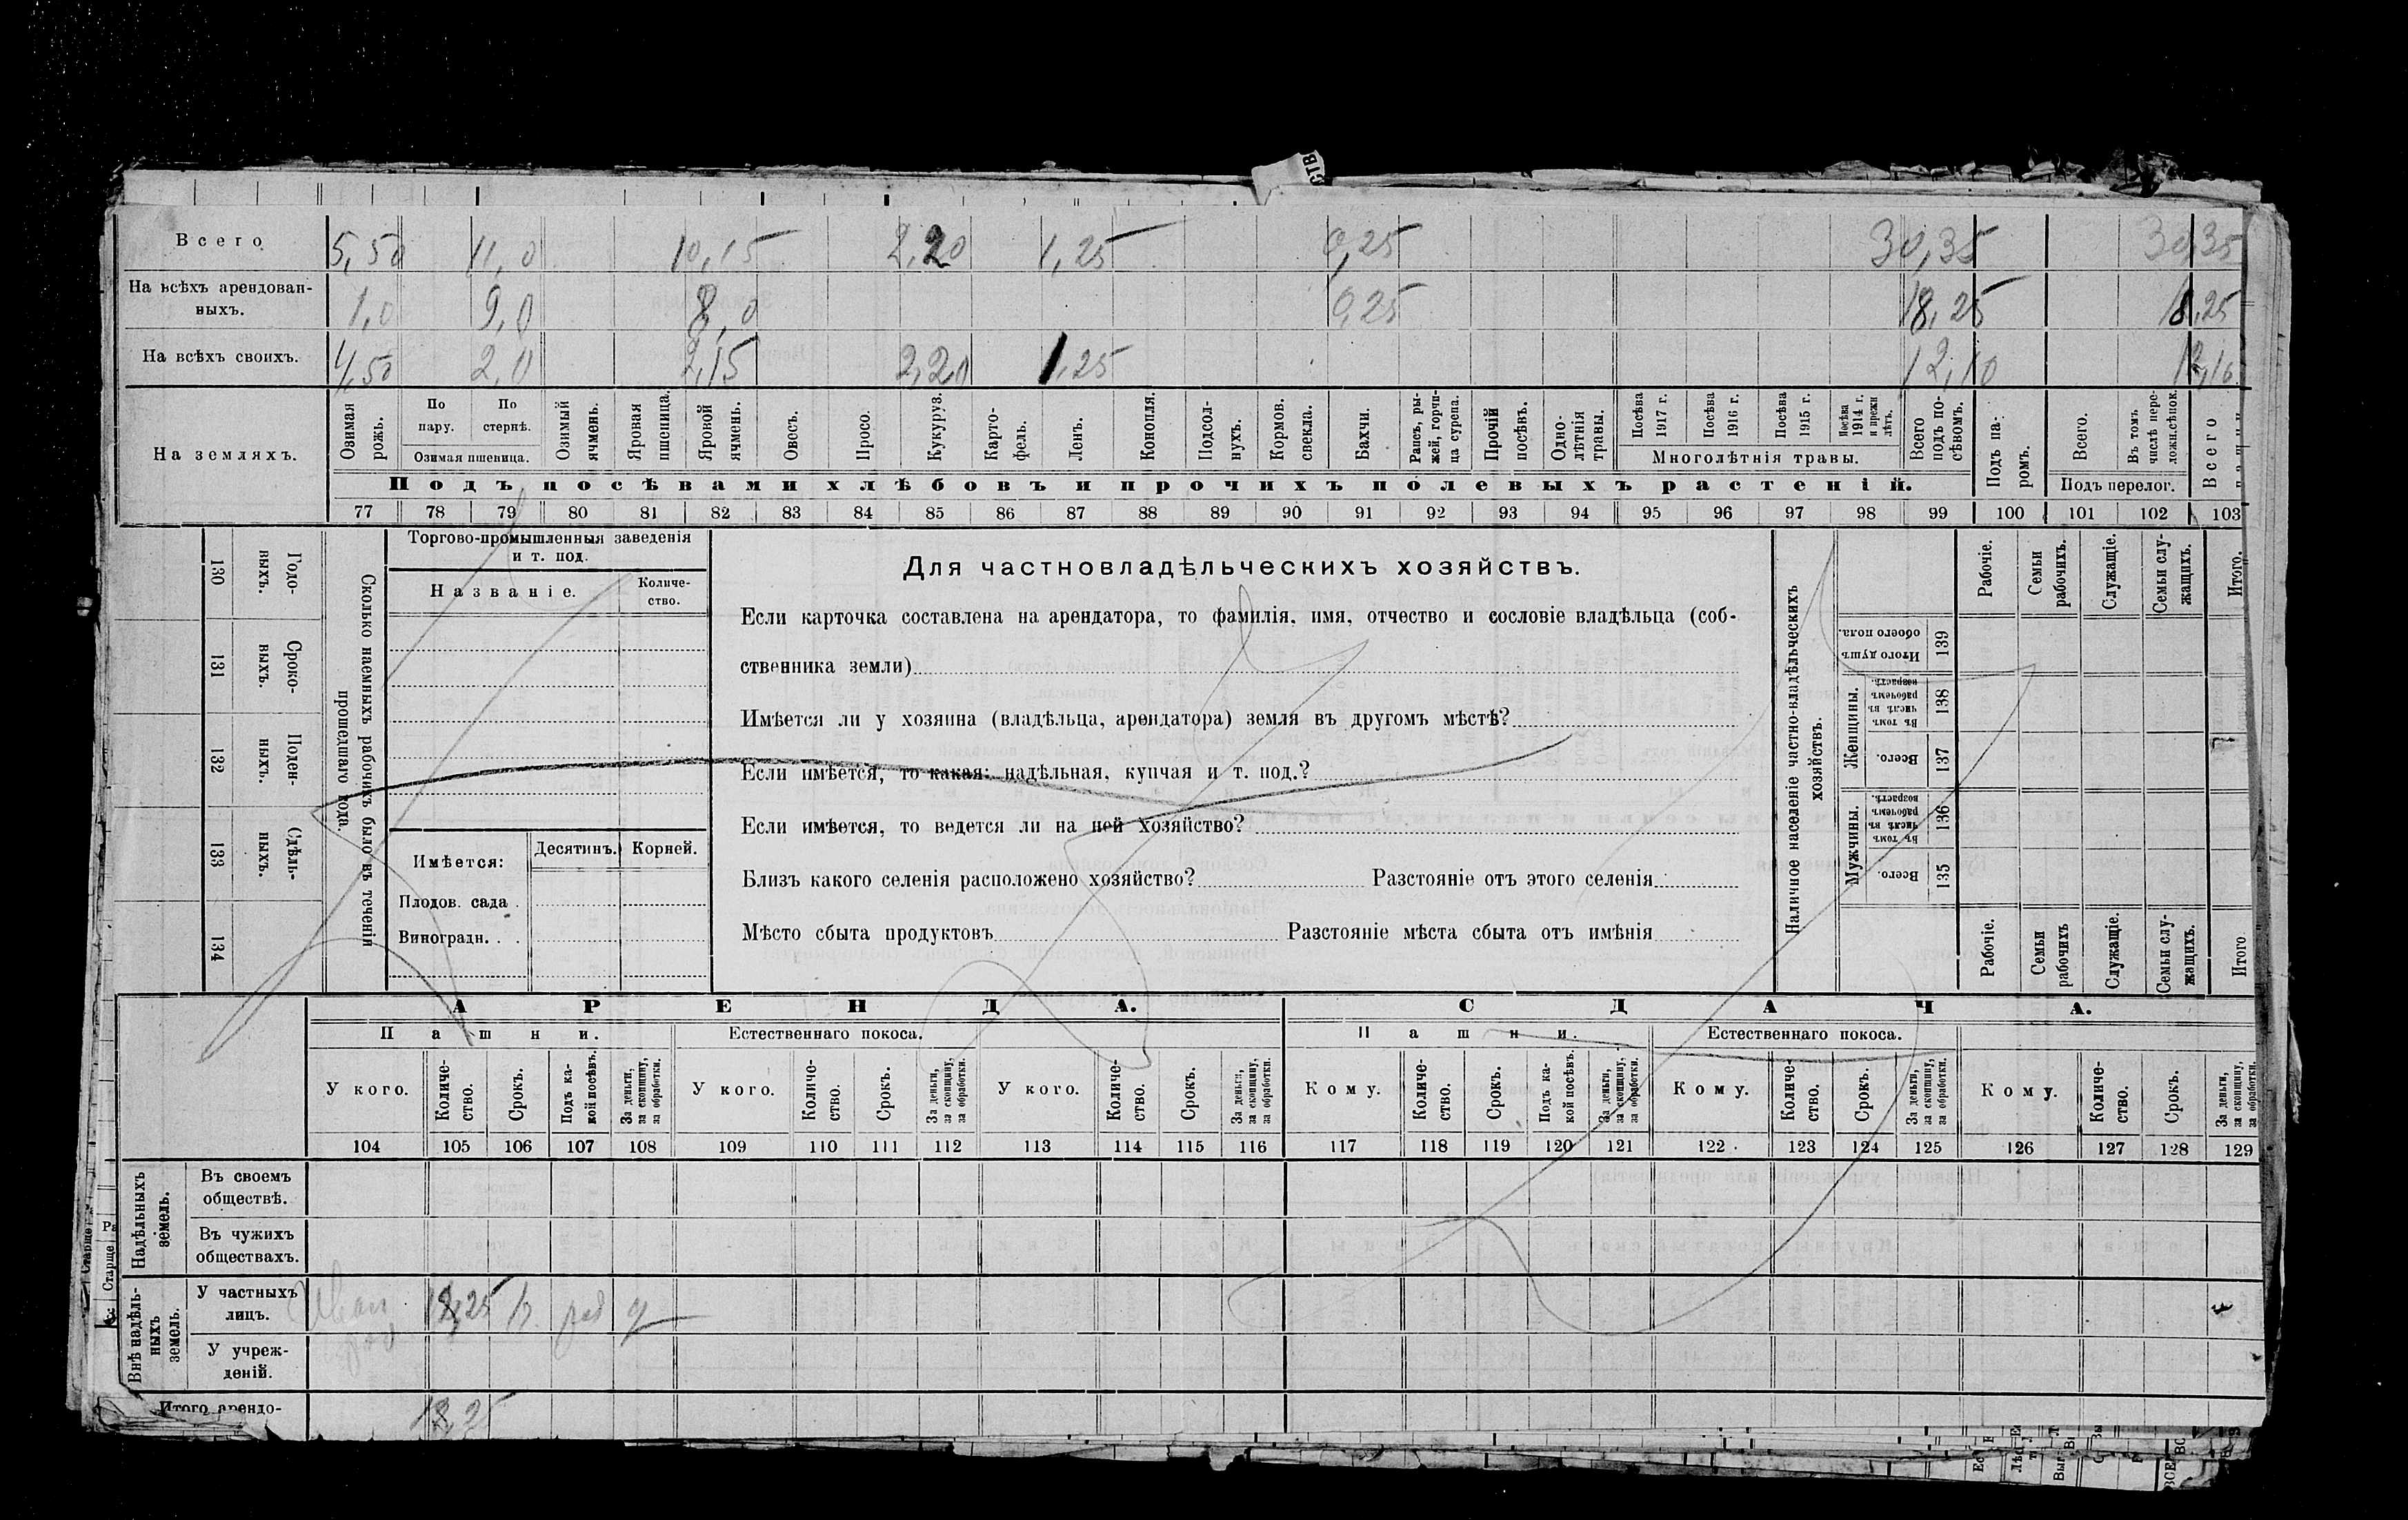 СТВ
Всего. 5,50 11,0 10,15 2,20 1,25 0,25 30,35 30,35
На всѣхъ арендован-
ныхъ. 1,0 9,0 8,0 0,25 18,25 18,25
На всѣхъ своихъ. 4,50 2,0 2,15 2,20 1,25 12,10 12,10
На земляхъ.
Озимая рожь.
По пару.
По стернѣ.
Озимая пшеница.
Озимый ячмень.
Яровая пшеница.
Яровой ячмень.
Овесъ.
Просо.
Кукуруз.
Карто-
фель.
Ленъ.
Конопля.
Подсол-
нухъ.
Кормов.
свекла.
Бахчи.
Рапсъ, ры-
жей, горчи-
ца сурепа.
Прочій посѣвъ.
Одно-
лѣтнія травы.
Посѣва 1917 г.
Посѣва 1916 г.
Посѣва 1915 г.
Посѣва 1914 г. и прежн лѣтъ.
Многолѣтнія травы.
Всего подъ по-
сѣвомъ.
Подъ па-
ромъ.
Всего.
Въ томъ числѣ пере-
ложн.сѣнок.
Подъ перелог.
Всего
Подъ посѣвами хлѣбовъ и прочихъ полевыхъ растеній.
77 78 79 80 81 82 83 84 85 86 87 88 89 90 91 92 93 94 95 96 97 98 99 100 101 102 103
130 Годо-
выхъ.
131 Сроко-
выхъ.
132 Поден-
ныхъ.
133 Сдѣль-
ныхъ.
134
Сколько наемныхъ рабочихъ было въ теченіи
прошедшаго года.
Торгово-промышленныя заведенія
и т. под.
Названіе.
Количе-
ство.
Имѣется:
Десятинъ.
Корней.
Плодов. сада .
Виноградн. . .
Для частновладѣльческихъ хозяйствъ.
Если карточка составлена на арендатора, то фамилія, имя, отчество и сословіе владѣльца (соб-
ственника земли)
Имѣется ли у хозяина (владѣльца, арендатора) земля въ другомъ мѣстѣ?
Если имѣется, то какая: надѣльная, купчая и т. под.?
Если имѣется, то ведется ли на ней хозяйство?
Близъ какого селенія расположено хозяйство? Разстояніе отъ этого селенія
Мѣсто сбыта продуктовъ Разстояніе мѣста сбыта отъ имѣнія
Наличное населеніе частно-владѣльческихъ
хозяйствъ.
Рабочіе.
Семьи рабочихъ.
Служащіе.
Семьи слу-
жащихъ.
Итого.
Итого душъ обоего пола. 139
Женщины.
Въ томъ числѣ въ рабочемъ возрастѣ. 138
Всего. 137
Мужчины.
Въ томъ числѣ въ рабочемъ возрастѣ. 136
Всего. 135
Рабочіе.
Семьи рабочихъ
Служащіе.
Семьи слу-
жащихъ.
Итого
АРЕНДА. СДАЧА.
Пашни. Естественнаго покоса. Пашни. Естественнаго покоса.
У кого.
Количе-
ство.
Срокъ.
Подъ ка-
кой посѣвъ.
За деньги,
за скопщину,
за обработки.
У кого.
Количе-
ство.
Срокъ.
За деньги,
за скопщину,
за обработки.
У кого.
Количе-
ство.
Срокъ.
За деньги,
за скопщину,
за обработки.
Кому.
Количе-
ство.
Срокъ.
Подъ ка-
кой посѣвъ.
За деньги,
за скопщину,
за обработки.
Кому.
Количе-
ство.
Срокъ.
За деньги,
за скопщину,
за обработки.
Кому.
Количе-
ство.
Срокъ.
За деньги,
за скопщину,
за обработки.
104 105 106 107 108 109 110 111 112 113 114 115 116 117 118 119 120 121 122 123 124 125 126 127 128 129
Надѣльныхъ
земель.
Въ своемъ
обществѣ.
Въ чужихъ
обществахъ.
Внѣ надѣль-
ныхъ
земель.
У частныхъ
лицъ. 18,25
У учреж-
деній.
Итого арендо- 18,25
Старше